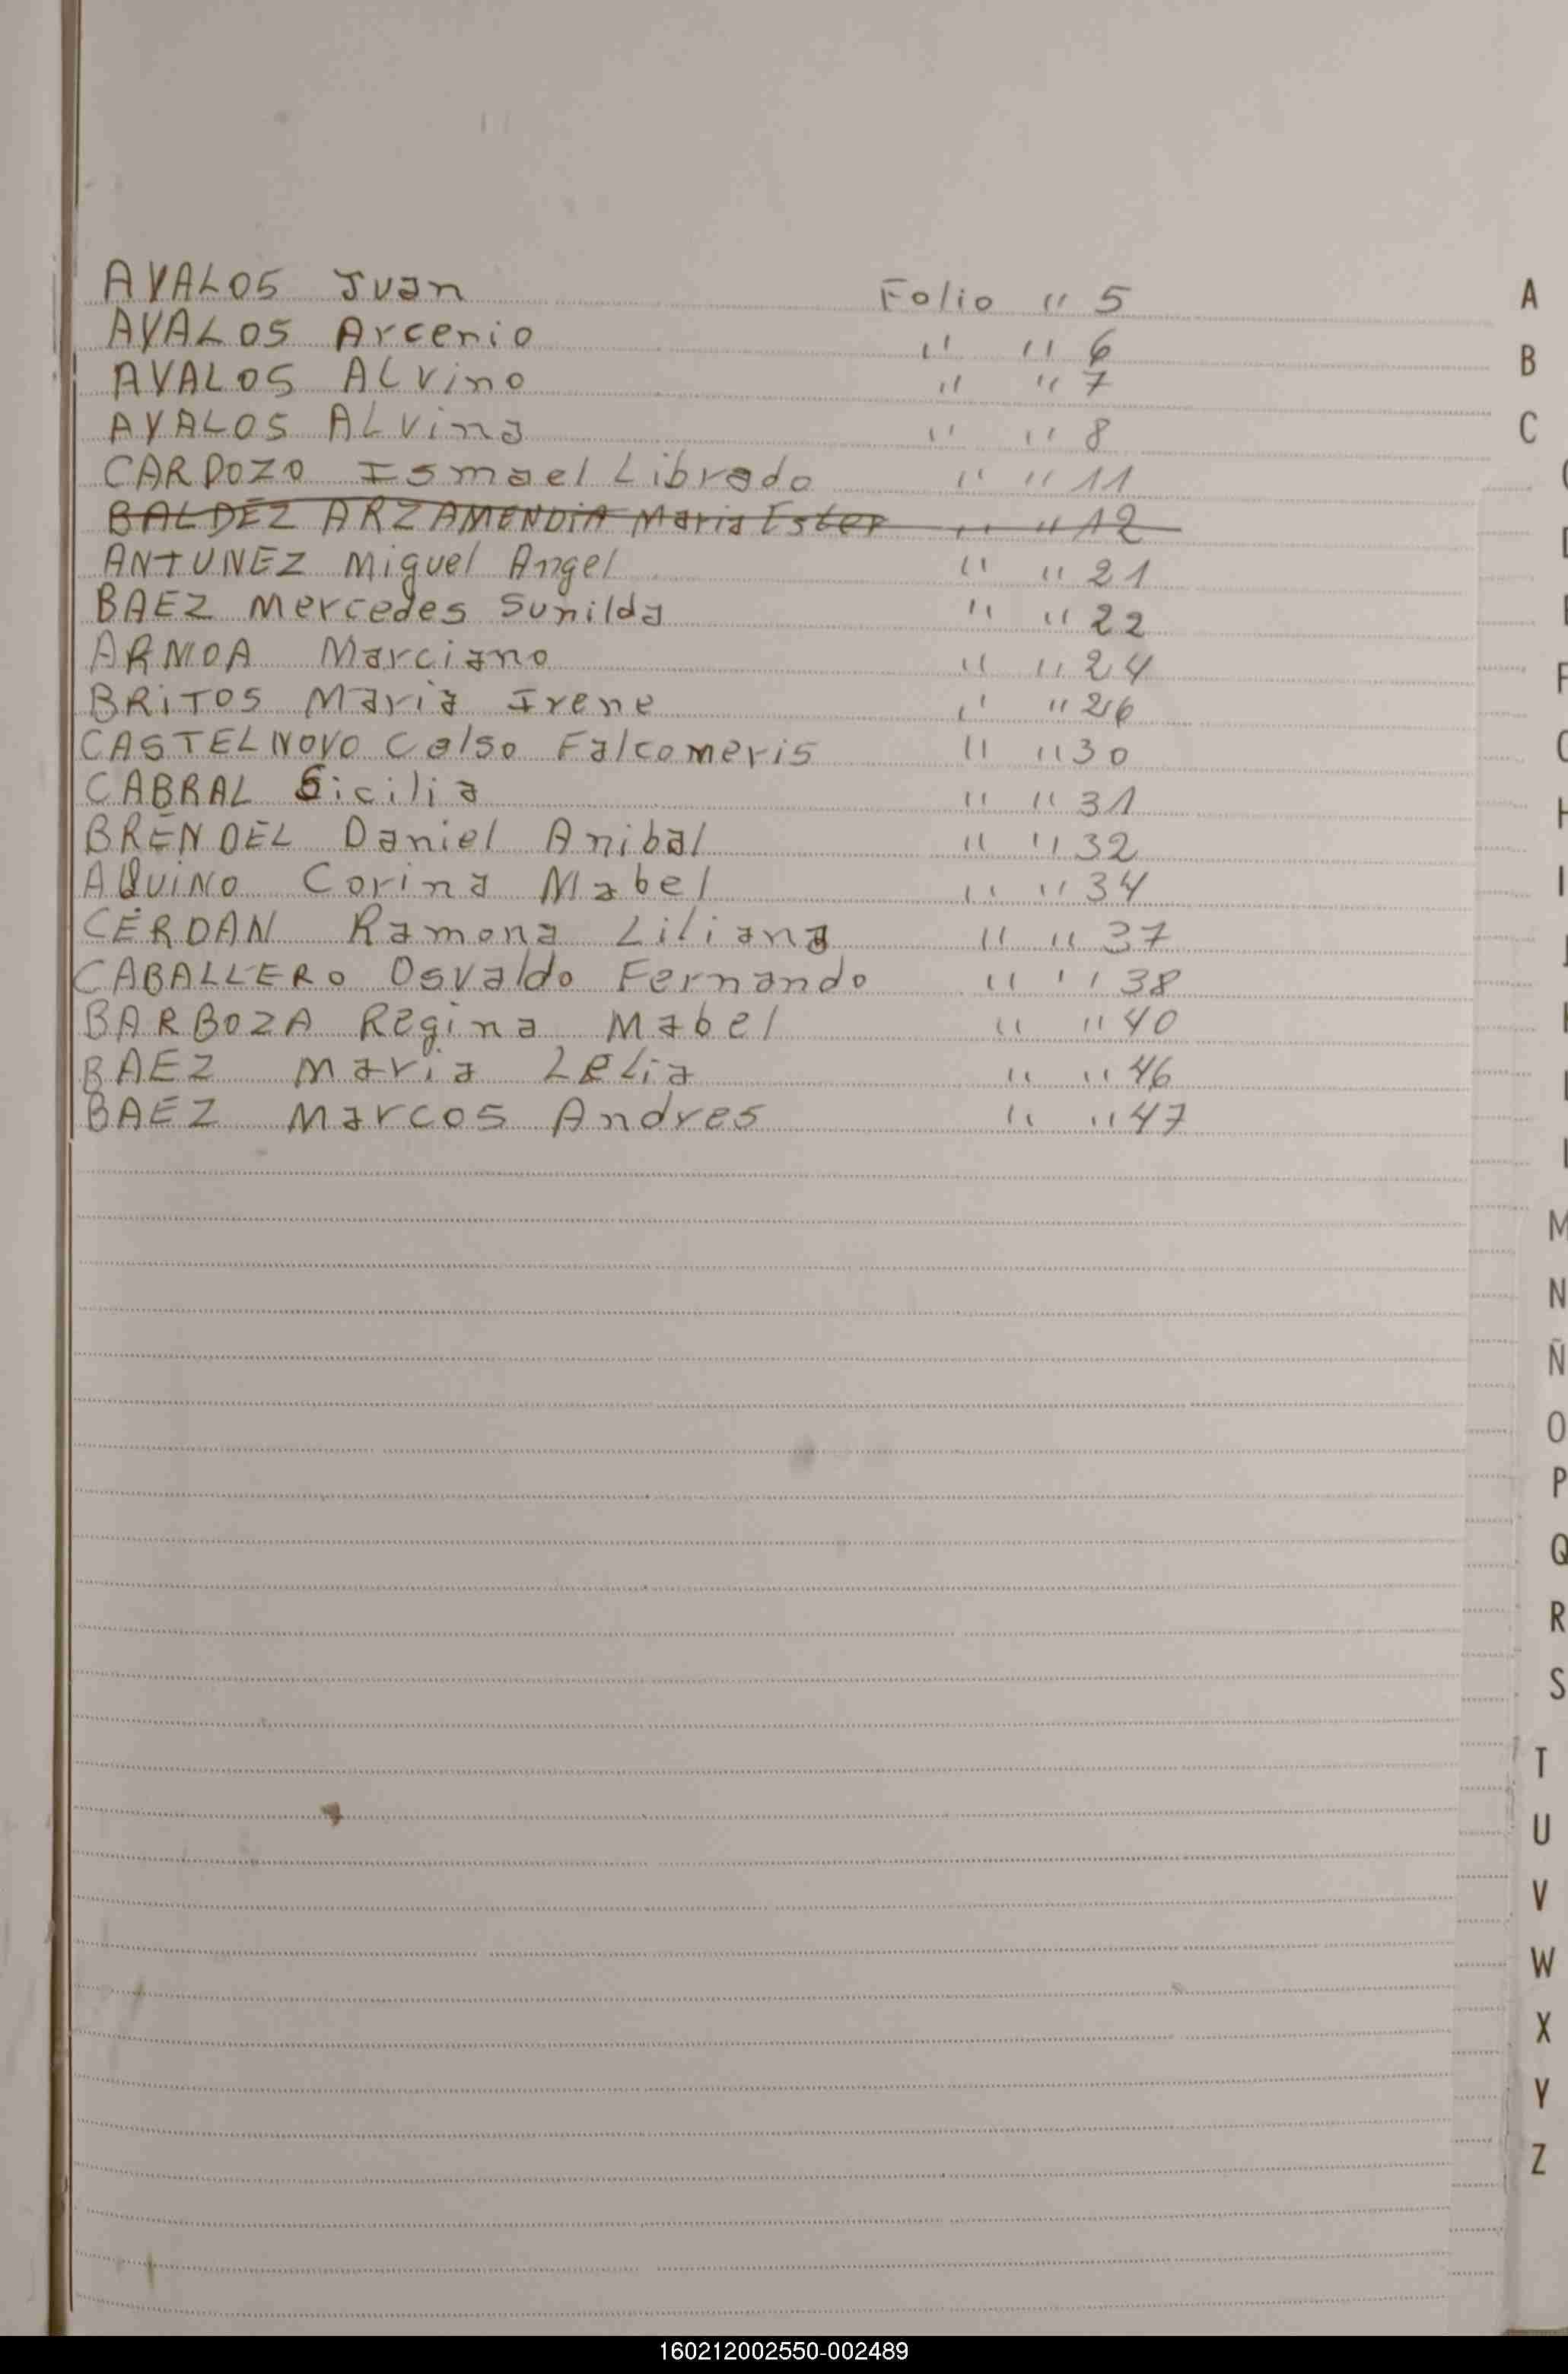 AVALOS Juan Folio " 5
AVALOS Arcenio " " 6
AVALOS ALvino " " 7
AVALOS ALvina " " 8
CARDOZO Ismael Librado " " 11
BALDEZ ARZAMENDIA Maria Ester " " 12
ANTUNEZ Miguel Angel " " 21
BAEZ Mercedes Sunilda " " 22
ARMOA Marciano " " 24
BRITOS Maria Irene " " 26
CASTELNOVO Celso Falcomeris " " 30
CABRAL Sicilia " " 31
BRENDEL Daniel Anibal " " 32
AQUINO Corina Mabel " " 34
CERDAN Ramona Liliana " " 37
CABALLERO Osvaldo Fernando " " 38
BARBOZA Regina Mabel " " 40
BAEZ Maria Lelia " " 46
BAEZ Marcos Andres " " 47
A
B
C
F
H
I
M
N
Ñ
O
P
Q
R
S
T
U
V
W
X
Y
Z
160212002550-002489